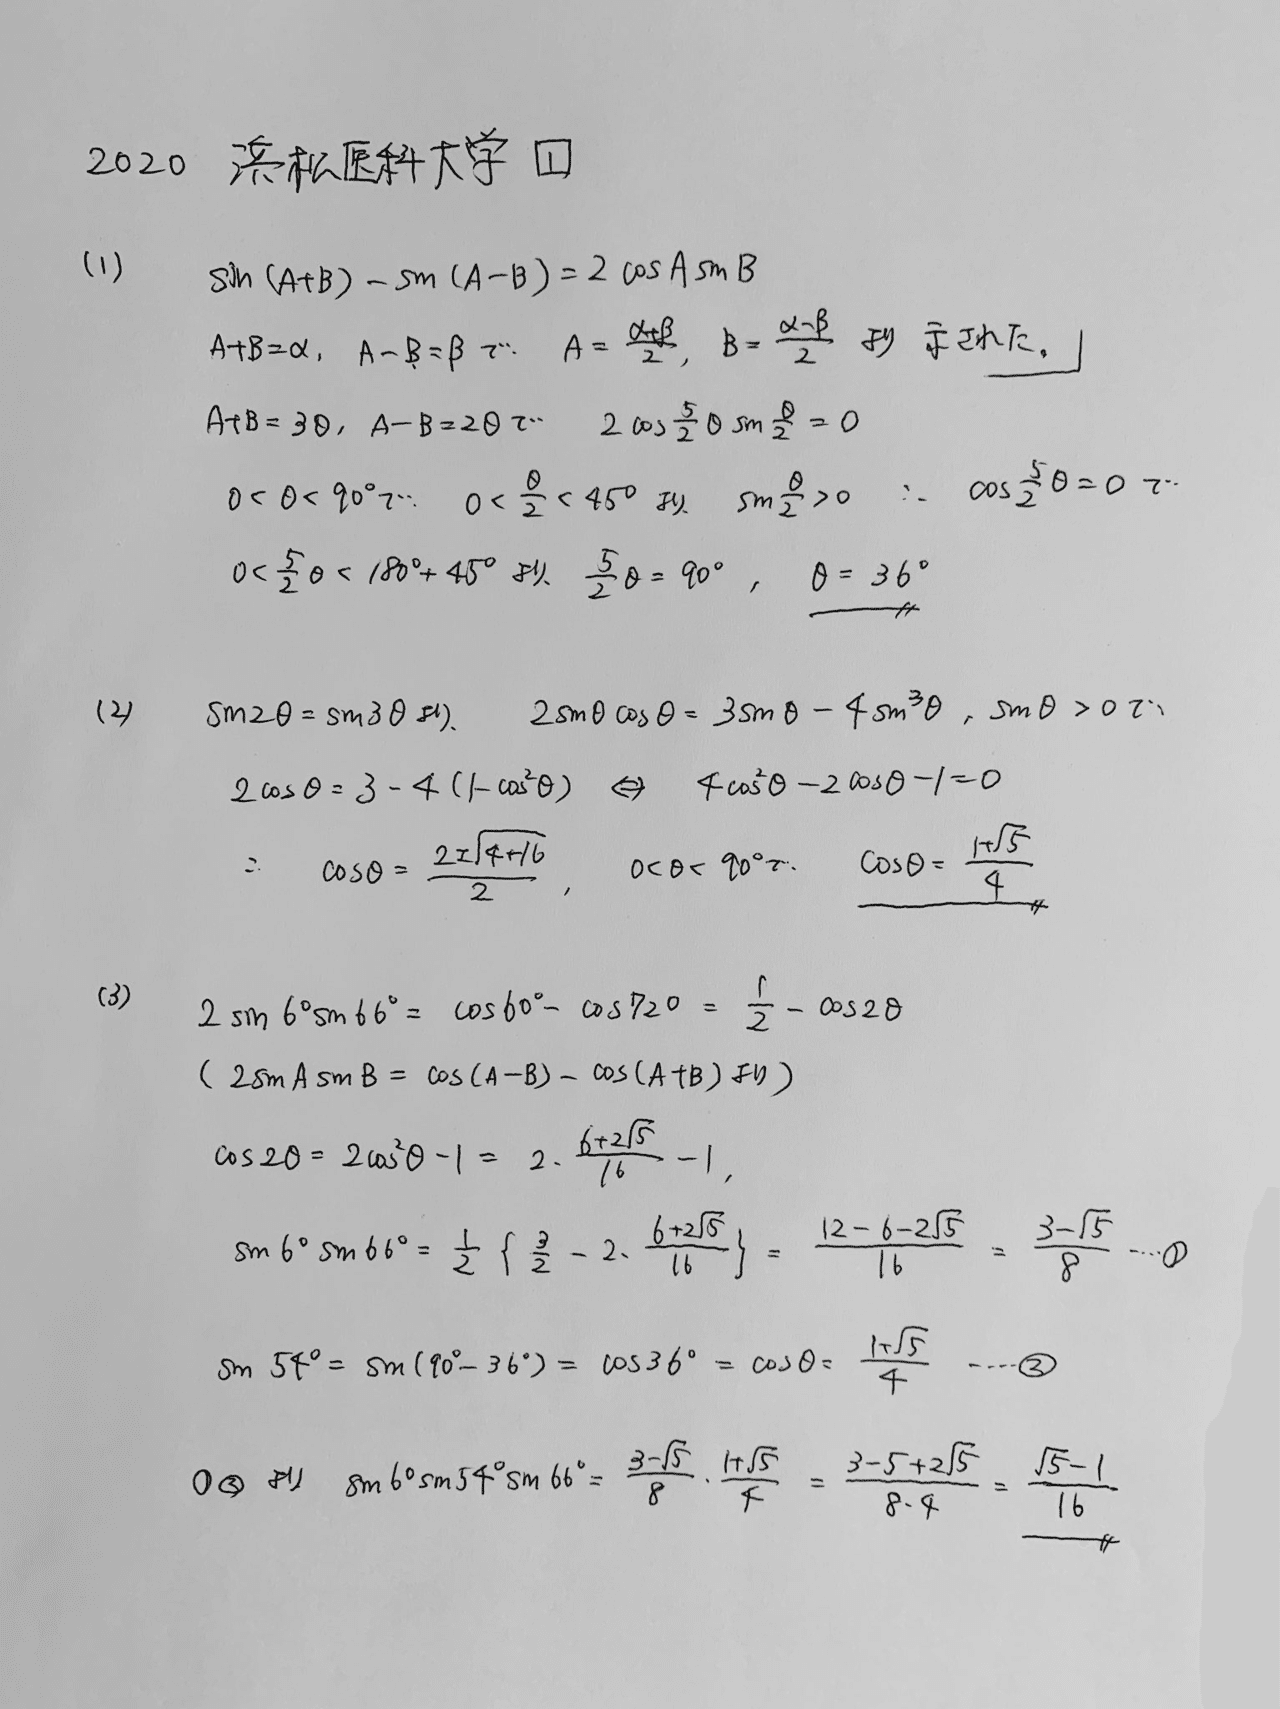 2020 浜松医科大学 1
(1) sin(A+B) - sin(A-B) = 2 cos A sin B
A+B=α, A-B=β で A = (α+β)/2, B = (α-β)/2 より 示された。」
A+B = 3θ, A-B = 2θ で 2 cos 5/2 θ sin θ/2 = 0
0 < θ < 90° で 0 < θ/2 < 45° より sin θ/2 > 0 ∴ cos 5/2 θ = 0 で
0 < 5/2 θ < 180°+45° より 5/2 θ = 90°, θ = 36°
(2) sin2θ = sin3θ より 2 sinθ cosθ = 3 sinθ - 4 sin³θ, sinθ > 0 で
2 cosθ = 3 - 4(1-cos²θ) ⇔ 4cos²θ - 2cosθ - 1 = 0
∴ cosθ = (2±√(4+16))/2, 0<θ<90° で cosθ = (1+√5)/4
(3) 2 sin 6° sin 66° = cos 60° - cos 72° = 1/2 - cos2θ
( 2 sin A sin B = cos(A-B) - cos(A+B) より )
cos 2θ = 2cos²θ - 1 = 2・(6+2√5)/16 - 1,
sin 6° sin 66° = 1/2 { 3/2 - 2・(6+2√5)/16 } = (12-6-2√5)/16 = (3-√5)/8 ....①
sin 54° = sin(90°-36°) = cos36° = cosθ = (1+√5)/4 ....②
①② より sin 6° sin 54° sin 66° = (3-√5)/8 ・ (1+√5)/4 = (3-5+2√5)/(8・4) = (√5-1)/16